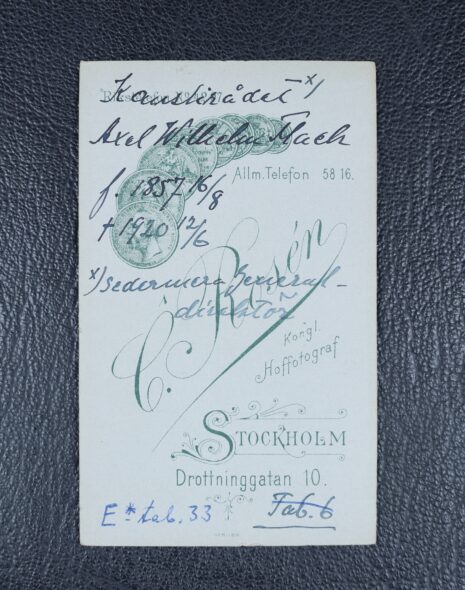 Kanslirådet x)
Axel Wilhelm Mach
Allm. Telefon 58 16.
f. 1857 16/8
† 1920 12/6
x) sedermera General-
direktör
C. Rosén
Kongl.
Hoffotograf
STOCKHOLM
Drottninggatan 10.
E* tab. 33
Tab. 6